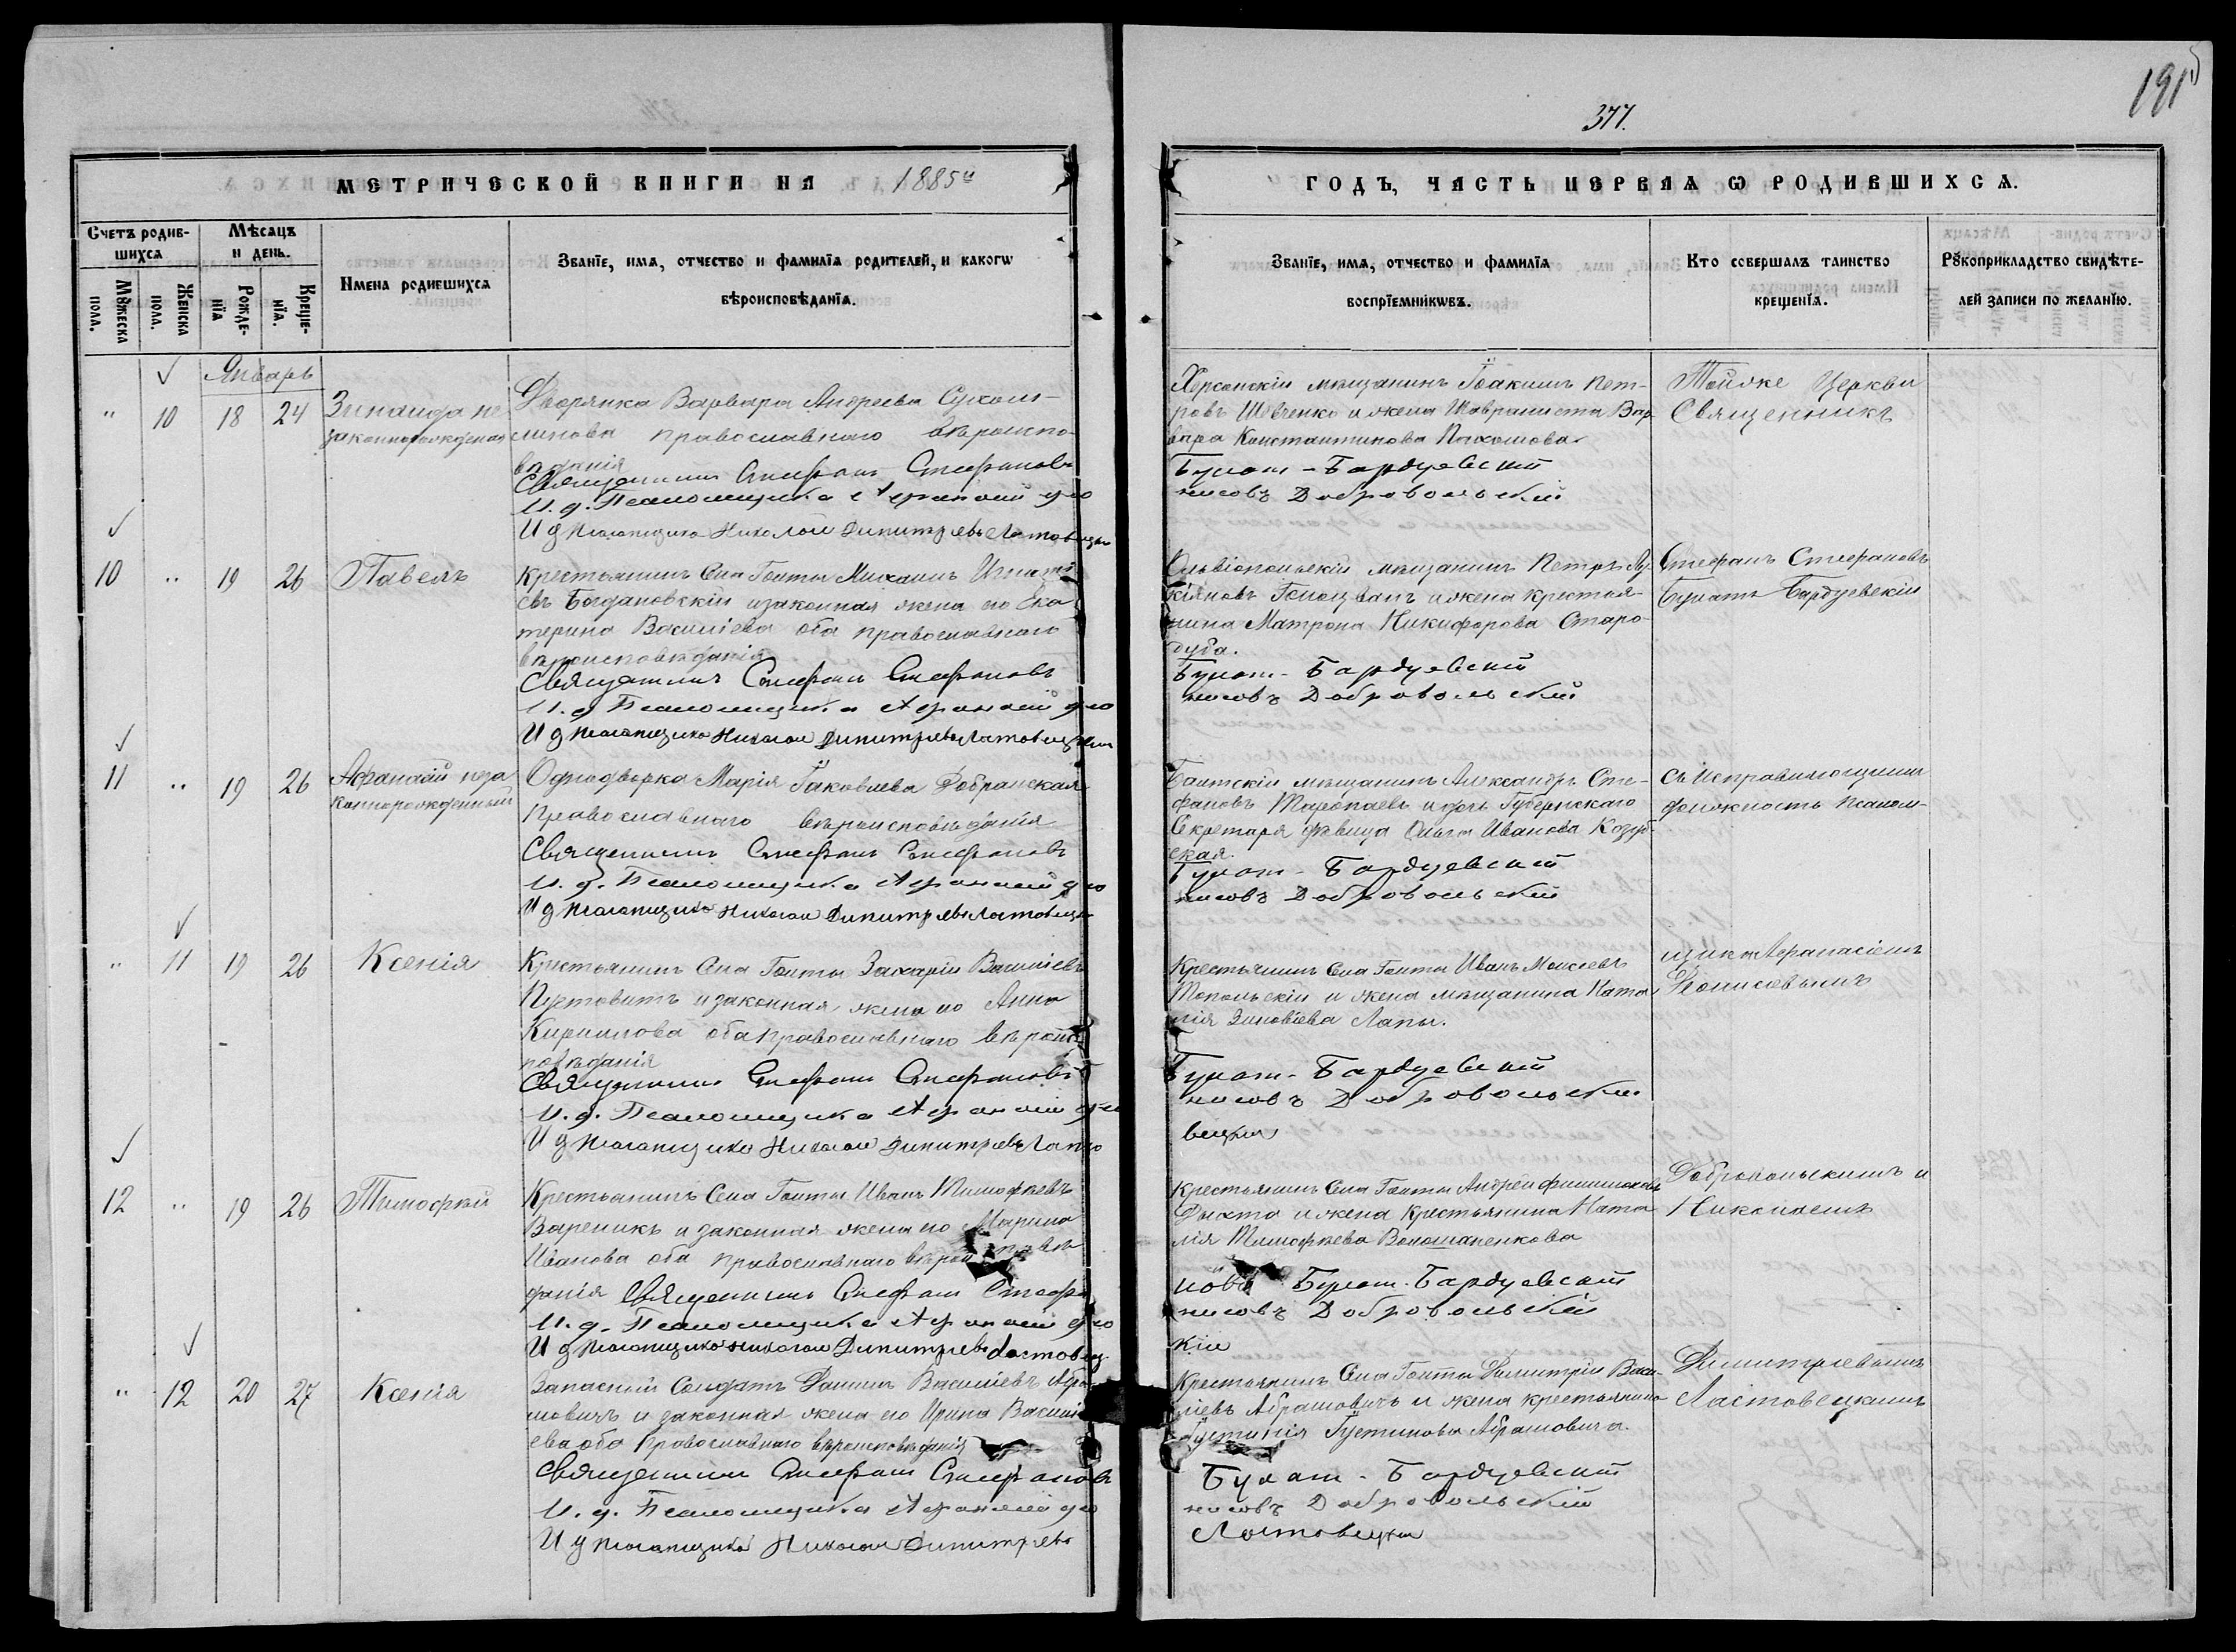 191
377.
МЕТРИЧЕСКОЙ КНИГИ НА 1885й
ГОДЪ, ЧАСТЬ ПЕРВАЯ Ѡ РОДИВШИХСѦ.
Счетъ родив-
шихсѧ
Мѣсѧцъ
и день.
Мꙋжеска
пола.
Женска
пола.
Рожде-
нїѧ
Креще-
нїѧ.
Имена родившихсѧ
Званїе, имѧ, отчество и фамилїѧ родителей, и какогѡ
вѣроисповѣданїѧ.
Званїе, имѧ, отчество и фамилїѧ
воспрїемникѡвъ.
Кто совершалъ таинство
крещенїѧ.
Рꙋкоприкладство свидѣте-
лей записи по желанїю.
Январь
" 10 18 24
Зинаида не
законнорожденая
Дворянка Варвара Андреева Сухом-
линова православнаго вѣроиспо-
вѣданія
Священникъ Стефанъ Стефановъ
И. д. Псаломщика Афанасій Дио
И д Псаломщика Николай Димитріевъ Ластовецкій
Херсонскій мѣщанинъ Іоакимъ Пет-
ровъ Шевченко и жена Вар-
вара Константинова
Булат-Бардуевский
нисовъ Добровольскій
Тойже Церкви
Священникъ
10 " 19 26
Павелъ
Крестьянинъ Села Голты Михаилъ Игнаті
евъ Богдановскій и законная жена его Ека
терина Василіева оба православнаго
вѣроисповѣданія
Священникъ Стефанъ Стефановъ
И. д. Псаломщика Афанасій Дио
И д Псаломщика Николай Димитріевъ Ластовецкій
Ольвіопольскій мѣщанинъ Петръ Лу
кіяновъ и жена крестья-
нина Матрона Никифорова Старо-
дуба.
Булат-Бардуевский
нисовъ Добровольскій
Стефанъ Стефановъ
Булатъ Бардуевскій
11 " 19 26
Афанасій неза
коннорожденный
Однодворка Марія Іаковлева Добранская
Православнаго вѣроисповѣданія
Священникъ Стефанъ Стефановъ
И. д. Псаломщика Афанасій Дио
И д Псаломщика Николай Димитріевъ Ластовецк
Балтскій мѣщанинъ Александръ Сте-
фановъ и дочь Губернскаго
Секретаря дѣвица Ольга Иванова Козуб-
ская.
Булат-Бардуевский
нисовъ Добровольскій
съ исправляющими
должность псалом-
" 11 19 26
Ксенія
Крестьянинъ Села Голты Захарій Василіевъ
Пустовитъ и законная жена его Анна
Кириллова оба православнаго вѣроис-
повѣданія
Священникъ Стефанъ Стефановъ
И. д. Псаломщика Афанасій Дио
И д Псаломщика Николай Димитріевъ Ласто
Крестьянинъ Села Голты Иванъ Моисеевъ
Топольскій и жена мѣщанина Ната
лія Зиновіева Лапы.
Булат-Бардуевский
нисовъ Добровольскій
вецкій
щика Афанасіемъ
Діонисовымъ
12 " 19 26
Тимофей
Крестьянинъ Села Голты Иванъ Тимофеевъ
Вареникъ и законная жена его Марина
Иванова оба православнаго вѣроисповѣ
данія Священникъ Стефанъ Стефа
И. д. Псаломщика Афанасій Дио
И д Псаломщика Николай Димитріевъ Ластовец
Крестьянинъ Села Голты Андрей Филимоновъ
и жена крестьянина Ната
лія Тимофеева
новъ Булат-Бардуевский
нисовъ Добровольскій
кій
Добровольскимъ и
Николаемъ
" 12 20 27
Ксенія
Запасный Солдатъ Даниилъ Василіевъ Абра-
мовичъ и законная жена его Ирина Василі
ева оба Православнаго вѣроисповѣданія
Священникъ Стефанъ Стефановъ
И. д. Псаломщика Афанасій Дио
И д Псаломщика Николай Димитріевъ
Крестьянинъ Села Голты Димитрій Васи-
ліевъ Абрамовичъ и жена крестьянина
Іустинія Іустинова Абрамовича.
Булат-Бардуевский
нисовъ Добровольскій
Ластовецкій
Димитріевымъ
Ластовецкимъ